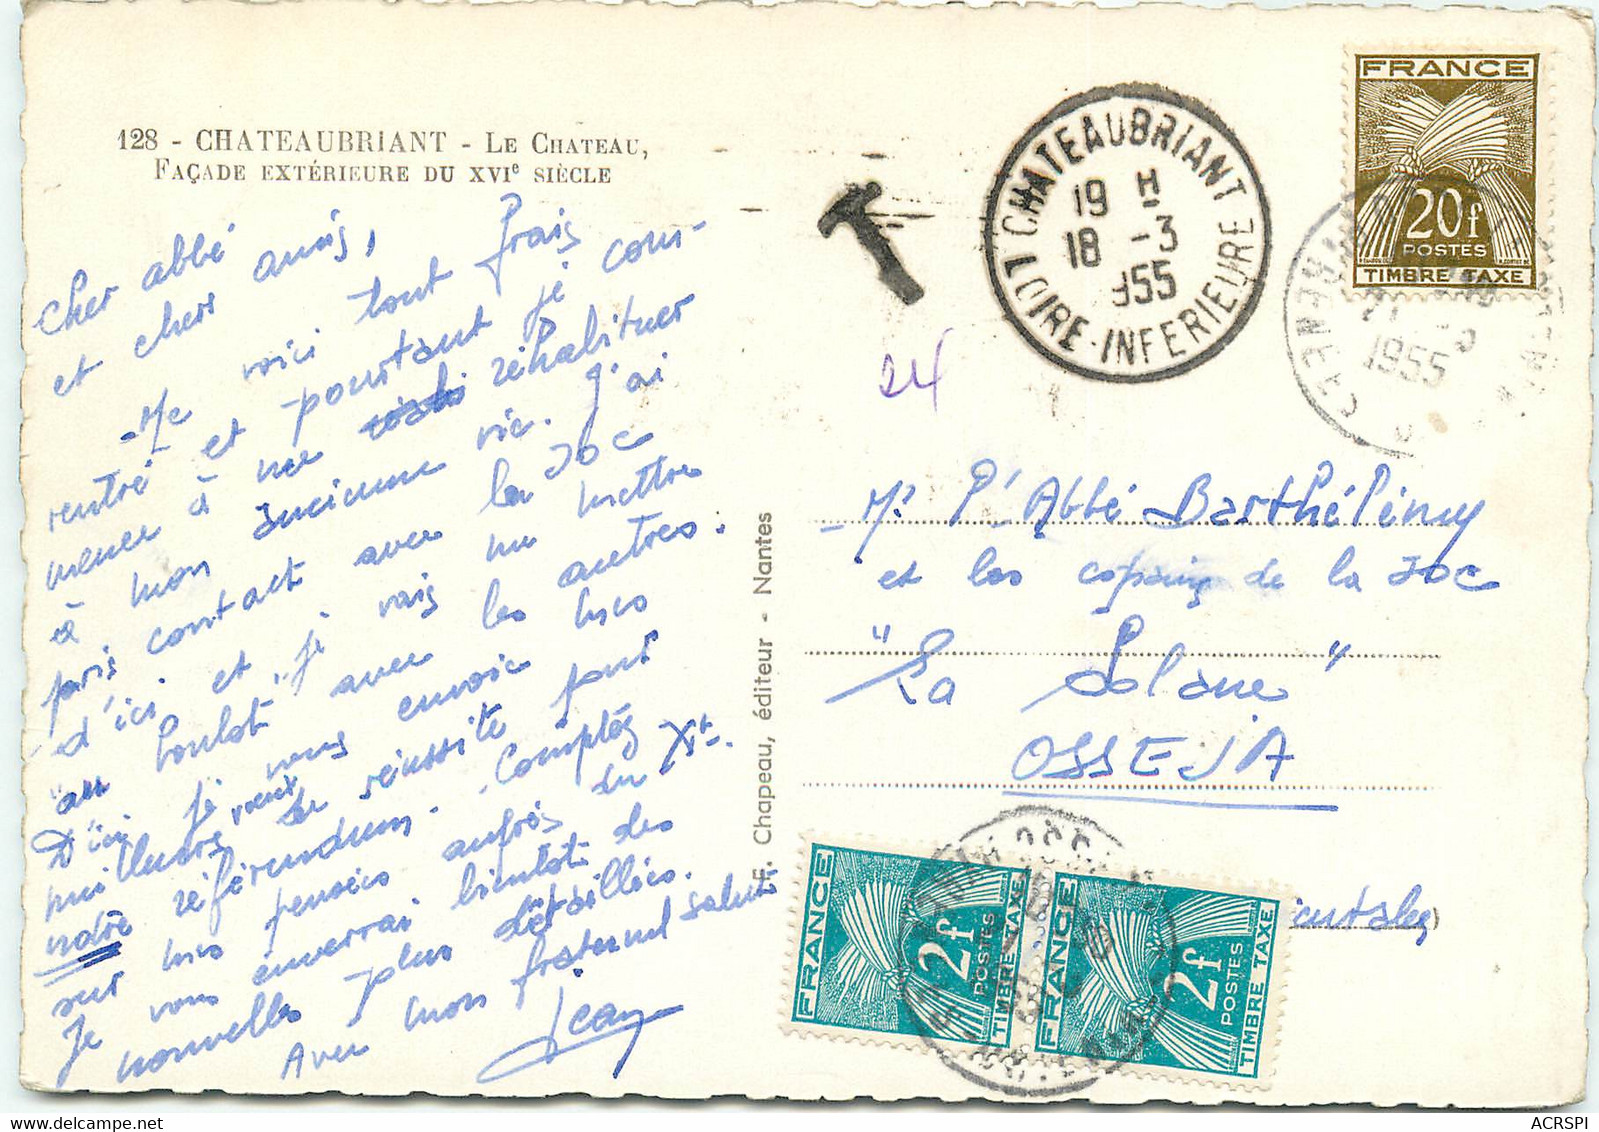 128 - CHATEAUBRIANT - LE CHATEAU,
FAÇADE EXTÉRIEURE DU XVIe SIÈCLE
Cher abbé
et chers amis,
Me voici tout frais
rentré et pourtant je com-
mence à me réhabituer
à mon ancienne vie. J'ai
pris contact avec la JOC
d'ici et je vais me mettre
au "boulot" avec les autres.
D'ici je vous envoie mes
meilleurs vœux de réussite pour
notre référendum. Comptez
sur mes pensées auprès du Xt.
Je vous enverrai bientôt des
nouvelles plus détaillées.
Avec mon fraternel salut
Jean
F. Chapeau, éditeur - Nantes
CHATEAUBRIANT
19 H
18 -3
1955
LOIRE-INFERIEURE
24
FRANCE
20f
POSTES
TIMBRE TAXE
1955
Mr l'Abbé Barthélémy
et les copains de la JOC
"La Solane"
OSSEJA
ientales)
FRANCE
2f
POSTES
TIMBRE TAXE
FRANCE
2f
POSTES
TIMBRE TAXE
www.delcampe.net
ACRSPI